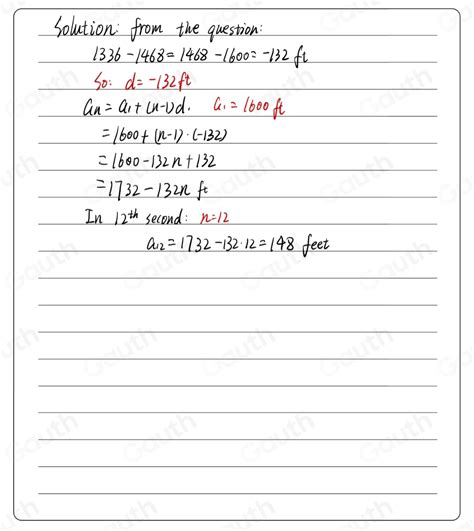 Solution: from the question:
1336-1468=1468-1600=-132 ft
So: d=-132ft
an=a1+(n-1)d. a1=1600ft
=1600+(n-1)·(-132)
=1600-132n+132
=1732-132n ft
In 12th second: n=12
a12=1732-132·12=148 feet